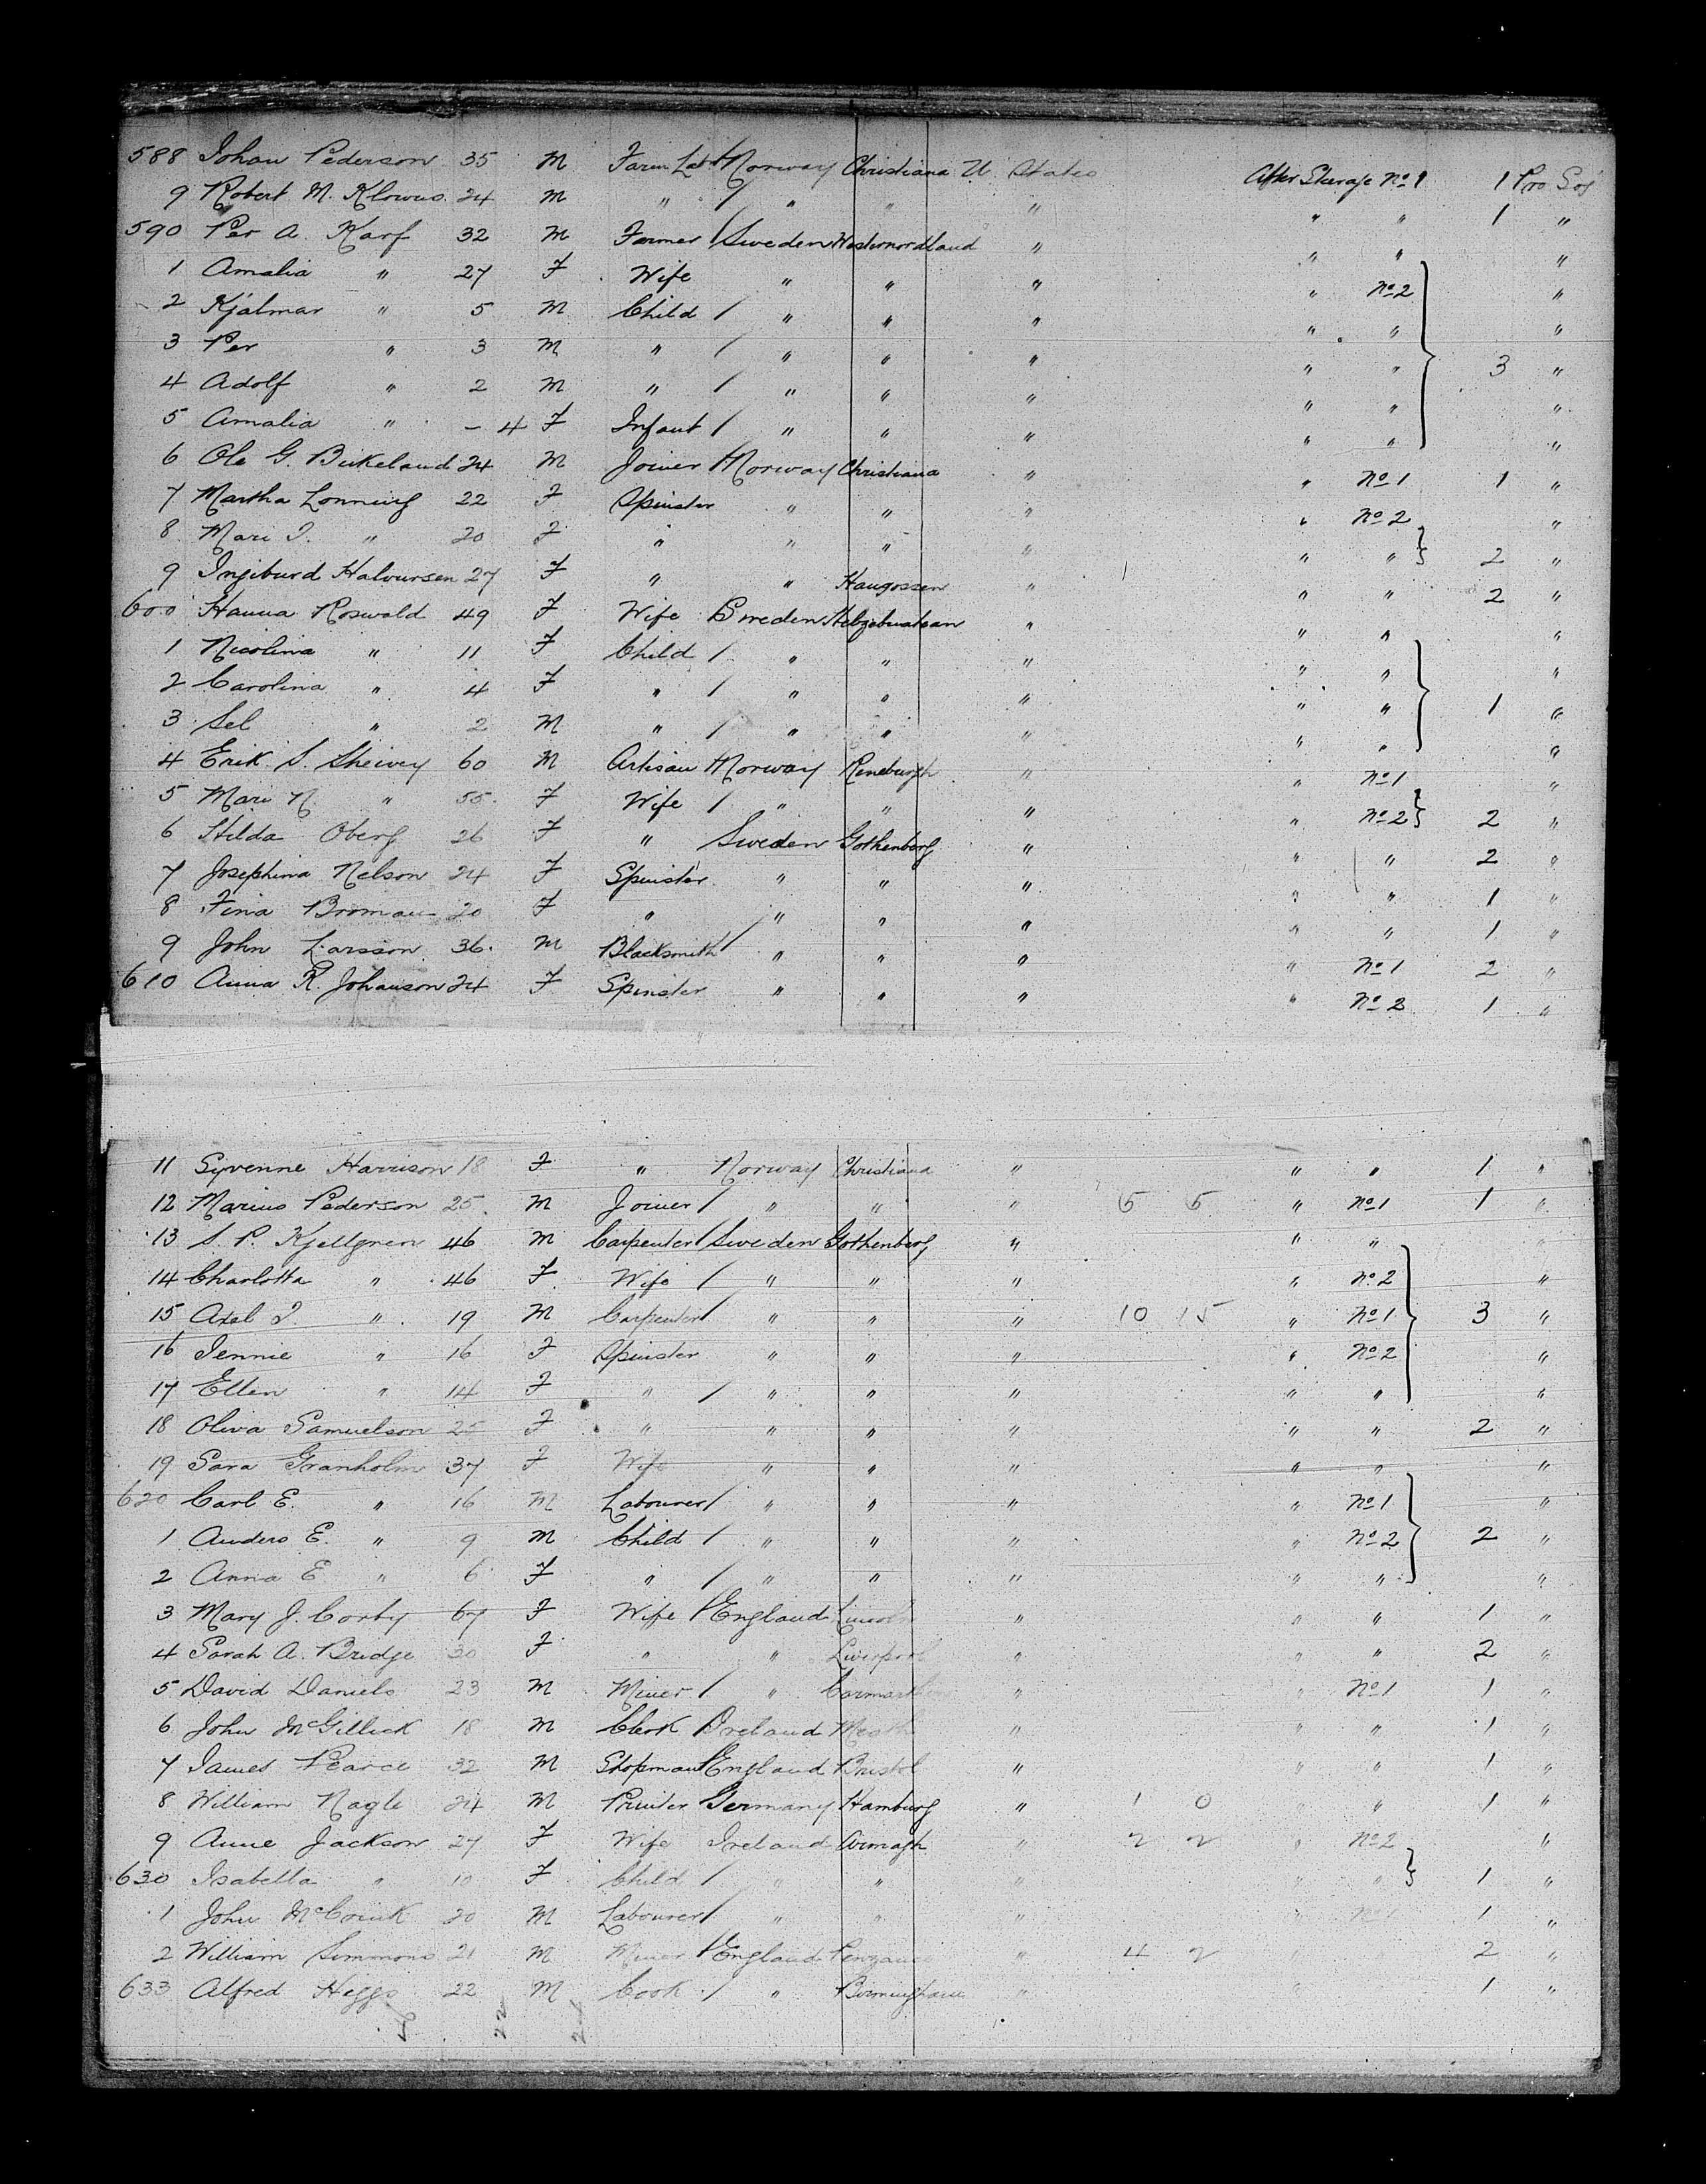 588 Johan Pederson 35 M Farm Lab Norway Christiana U. States After Sterage No 1 1 Pro Soj
9 Robert M. Klowns. 24 M " / " " " " " 1 "
590 Per A. Karf 32 M Farmer / Sweden Westernordland " " " "
1 Amalia " 27 F Wife " " " " No 2 "
2 Hjalmar " 5 M Child / " " " " " "
3 Per " 3 M " / " " " " " 3 "
4 Adolf " 2 M " / " " " " " "
5 Amalia " - 4 F Infant / " " " " " "
6 Ole G. Birkeland 24 M Joiner Norway Christiana " " No 1 1 "
7 Martha Lonning 22 F Spinster " " " " No 2 "
8 Mari I. " 20 F " " " " " " 2 "
9 Ingiburd Halvursen 27 F " " Haugossen " " " 2 "
600 Hanna Roswald 49 F Wife Sweden " " " "
1 Nicolina " 11 F Child / " " " " " "
2 Carolina " 4 F " / " " " " " 1 "
3 Sel " 2 M " / " " " " " "
4 Erik S. Sheivey 60 M Artisan Norway Rineburgh " " No 1 "
5 Mari N. " 55 F Wife / " " " " No 2 2 "
6 Hilda Oberg 26 F " Sweden Gothenborg " " " 2 "
7 Josephina Nelson 24 F Spinster " " " " " 1 "
8 Fina Broman 20 F " " " " " " 1 "
9 John Larsson 36 M Blacksmith / " " " " No 1 2 "
610 Anna R. Johanson 24 F Spinster " " " " No 2 1 "
11 Syvenne Harrison 18 F " Norway Christiana " " " 1 "
12 Marius Pederson 25 M Joiner / " " " 5 5 " No 1 1 "
13 S. P. Kjellgren 46 M Carpenter / Sweden Gothenborg " " " "
14 Charlotta " 46 F Wife / " " " " No 2 "
15 Axel I. " 19 M Carpenter / " " " 10 15 " No 1 3 "
16 Jennie " 16 F Spinster " " " " No 2 "
17 Ellen " 14 F " / " " " " " "
18 Oliva Samuelson 25 F " " " " " " 2 "
19 Sara Granholm 37 F Wife " " " " " "
620 Carl E. " 16 M Labourer / " " " " No 1 "
1 Anders E. " 9 M Child / " " " " No 2 2 "
2 Anna E " 6 F " / " " " " " "
3 Mary J. Corby 67 F Wife / England Lincoln " " " 1 "
4 Sarah A. Bridge 30 F " " Liverpool " " " 2 "
5 David Daniels 23 M Miner / " Carmarthen " " No 1 1 "
6 John McGillick 18 M Clerk Ireland Meath " " " 1 "
7 James Pearce 32 M Shopman England Bristol " " " 1 "
8 William Nagle 24 M Printer Germany Hamburg " 1 0 " 1 "
9 Anne Jackson 27 F Wife Ireland Armagh " 2 2 " No 2 "
630 Isabella " 10 F Child / " " " " " 1 "
1 John McCrink 20 M Labourer / " " " " No 1 1 "
2 William Simmons 21 M Miner / England Penzance " 4 2 " " 2 "
633 Alfred Higgs 22 M Cook / " Birmingham " " 1 "